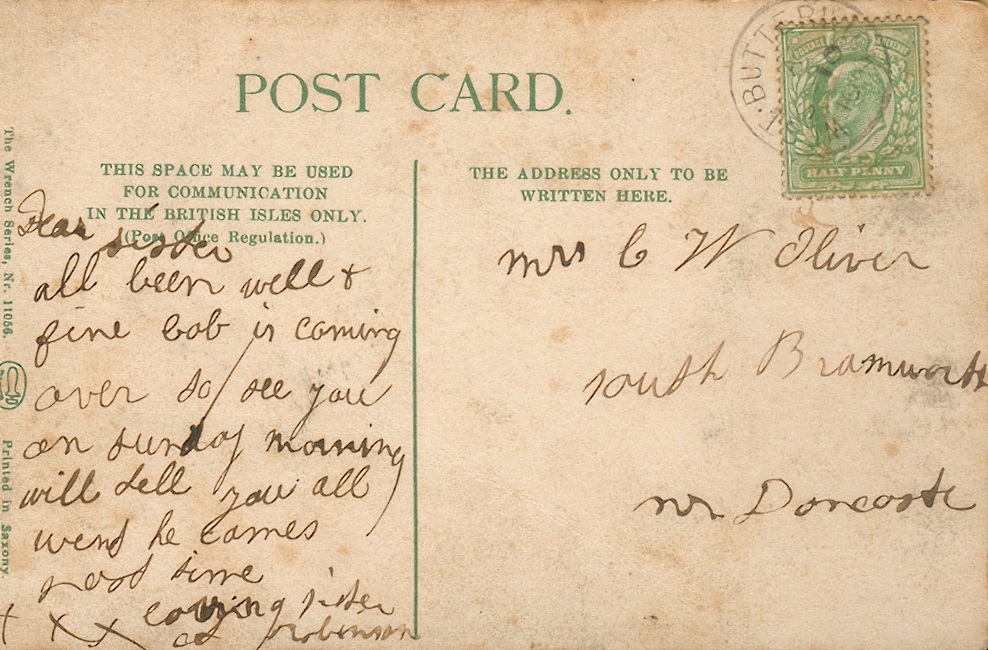 POST CARD.
THIS SPACE MAY BE USED
FOR COMMUNICATION
IN THE BRITISH ISLES ONLY.
(Post Office Regulation.)
Dear sister
all been well &
fine bob is coming
over to see you
on sunday morning
will tell you all
wend he comes
good time
loving sister
robinson
x x x
THE ADDRESS ONLY TO BE
WRITTEN HERE.
mrs C W Oliver
south Bramwith
nr Doncaste
HALF PENNY
BUTTERWICK
The Wrench Series, Nr. 11056.
Printed in Saxony.